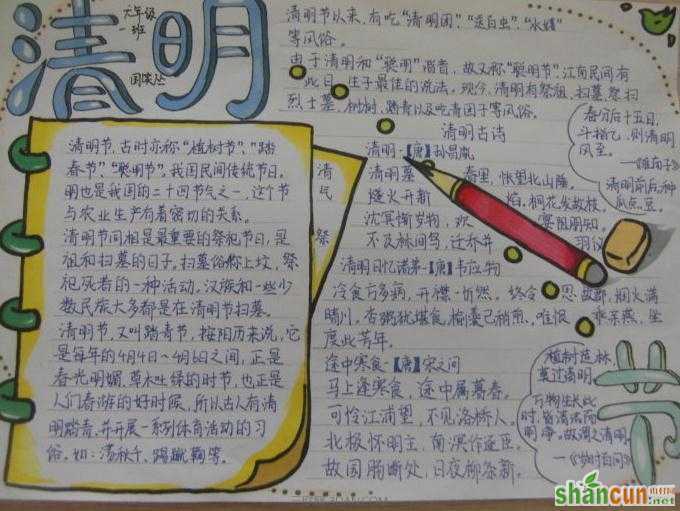 清明
六年级
一班
清明节以来,有吃"清明团"、
等风俗。
由于清明和"聪明"谐音,故又称"聪明节",江南民间有
此日生子最佳的说法,现今,清明有祭祖、扫墓、祭扫
烈士墓、植树、踏青以及吃青团子等风俗。
清明古诗
清明·【唐】孙昌胤
清明暮春里,怅望北山陲。
燧火开新焰,桐花发故枝。
沈冥惭岁物,欢宴阻朋知。
不及林间鸟,迁乔并羽仪
清明日忆诸弟·【唐】韦应物
冷食方多病,开襟一忻然。终令思故郡,烟火满
晴川。杏粥犹堪食,榆羹已稍煎。唯恨乖亲燕,坐
度此芳年。
途中寒食·【唐】宋之问
马上逢寒食,途中属暮春。
可怜江浦望,不见洛桥人。
北极怀明主,南溟作逐臣。
故园肠断处,日夜柳条新。
清明节,古时亦称"植树节"、"踏
春节"、"聪明节",我国民间传统节日。
明也是我国的二十四节气之一,这个节
与农业生产有着密切的关系。
清明节间相是最重要的祭祀节日,是
祖和扫墓的日子。扫墓俗称上坟,祭
祀死者的一种活动。汉族和一些少
数民族大多都是在清明节扫墓。
清明节,又叫踏青节,按阳历来说,它
是每年的4月4日~4月6日之间,正是
春光明媚,草木吐绿的时节,也正是
人们春游的好时候,所以古人有清
明踏青,并开展一系列体育活动的习
俗。如:荡秋千、踢蹴鞠等。
清
民
祭
春分后十五日,
斗指乙,则清明
风至。
—《淮南子》
清明前后,种
瓜点豆。
植树造林,
莫过清明。
万物生长此
时,皆清洁而
明净,故谓之清明。
—《岁时百问》
节
shancun